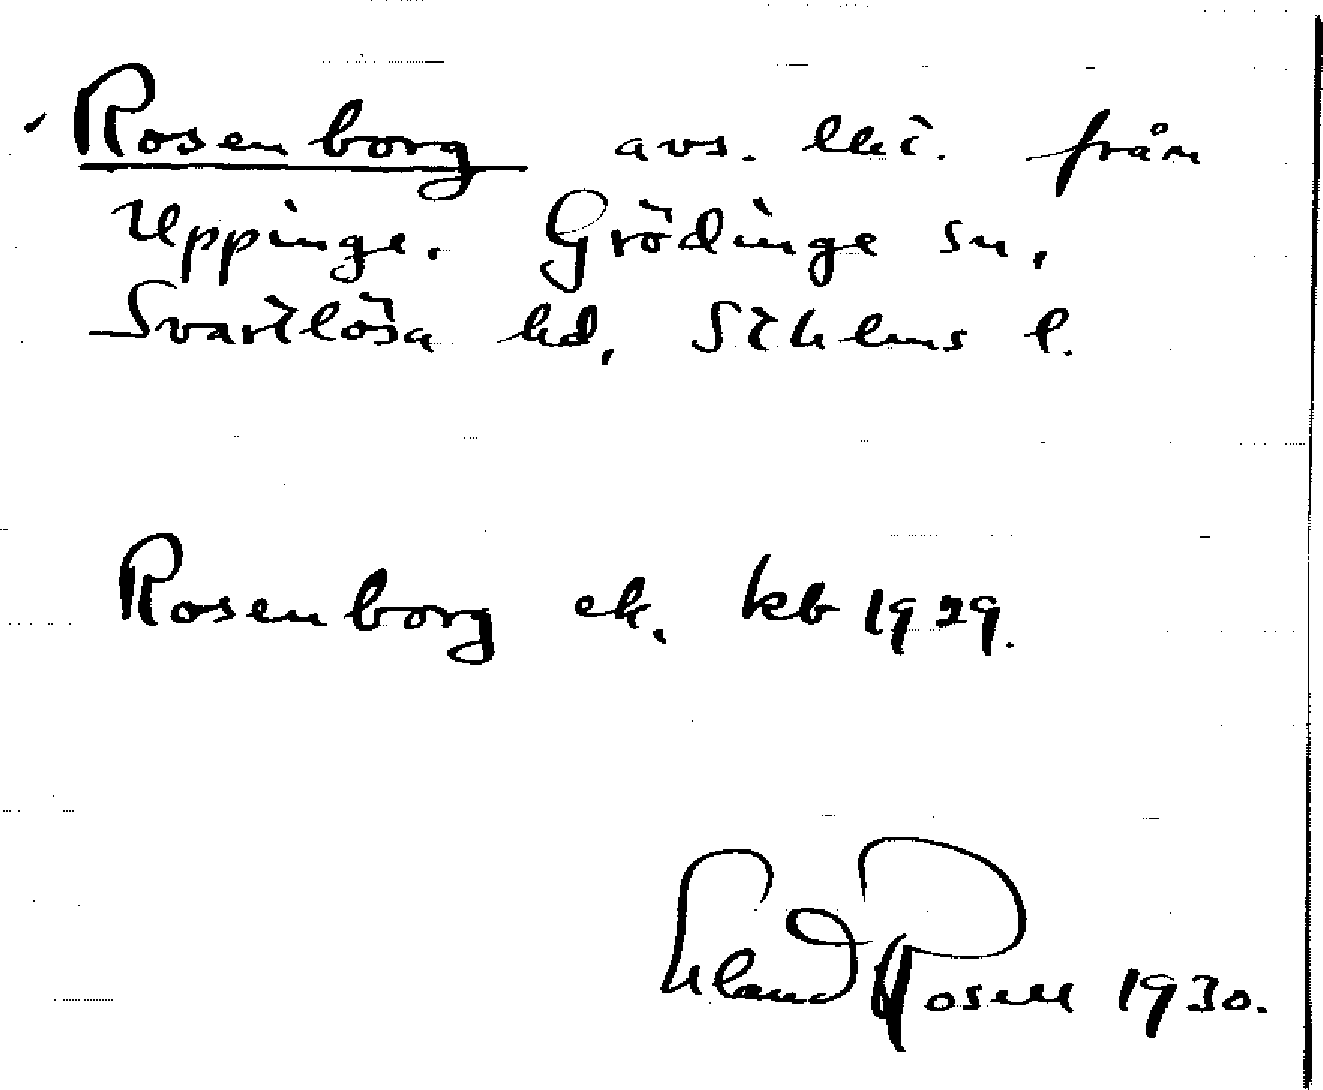 Rosenborg avs. lht. från
Uppinge. Grödinge sn,
Svartlösa hd, Sthlms l.
Rosenborg ek. kb 1929.
Erland Rosell 1930.